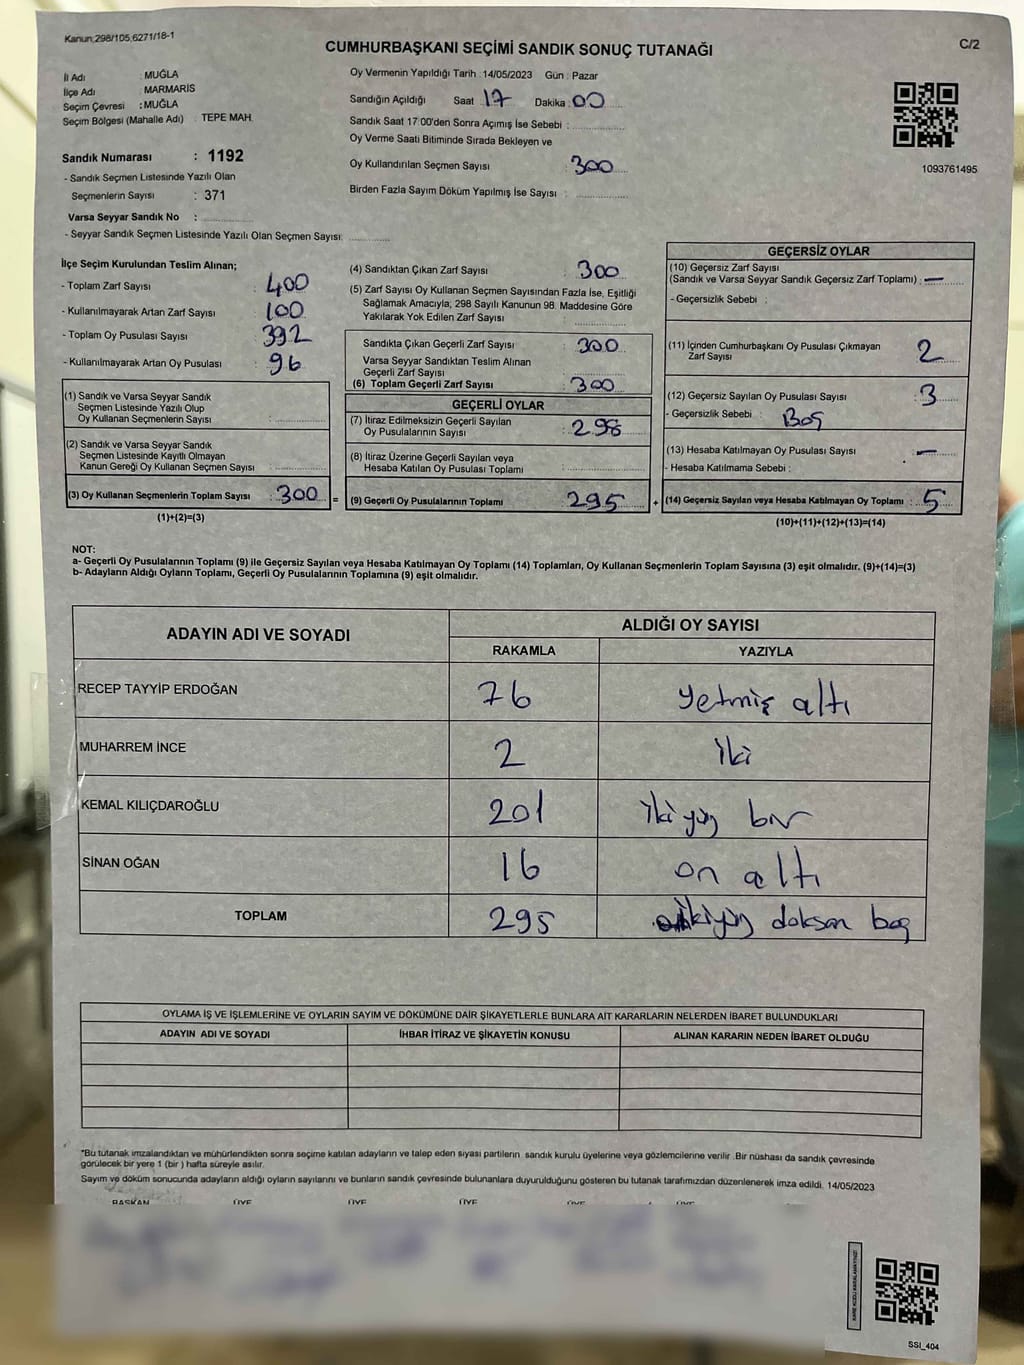 Kanun;298/105,6271/18-1
CUMHURBAŞKANI SEÇİMİ SANDIK SONUÇ TUTANAĞI
C/2
İl Adı : MUĞLA
İlçe Adı : MARMARİS
Seçim Çevresi : MUĞLA
Seçim Bölgesi (Mahalle Adı) : TEPE MAH.
Sandık Numarası : 1192
- Sandık Seçmen Listesinde Yazılı Olan
Seçmenlerin Sayısı : 371
Varsa Seyyar Sandık No :
- Seyyar Sandık Seçmen Listesinde Yazılı Olan Seçmen Sayısı:
Oy Vermenin Yapıldığı Tarih : 14/05/2023 Gün : Pazar
Sandığın Açıldığı Saat 17 Dakika : 00
Sandık Saat 17:00'den Sonra Açımış İse Sebebi :
Oy Verme Saati Bitiminde Sırada Bekleyen ve
Oy Kullandırılan Seçmen Sayısı : 300
Birden Fazla Sayım Döküm Yapılmış İse Sayısı :
1093761495
İlçe Seçim Kurulundan Teslim Alınan;
- Toplam Zarf Sayısı : 400
- Kullanılmayarak Artan Zarf Sayısı : 100
- Toplam Oy Pusulası Sayısı : 392
- Kullanılmayarak Artan Oy Pusulası : 96
(1) Sandık ve Varsa Seyyar Sandık
Seçmen Listesinde Yazılı Olup
Oy Kullanan Seçmenlerin Sayısı :
(2) Sandık ve Varsa Seyyar Sandık
Seçmen Listesinde Kayıtlı Olmayan
Kanun Gereği Oy Kullanan Seçmen Sayısı :
(3) Oy Kullanan Seçmenlerin Toplam Sayısı : 300 =
(1)+(2)=(3)
(4) Sandıktan Çıkan Zarf Sayısı : 300
(5) Zarf Sayısı Oy Kullanan Seçmen Sayısından Fazla İse, Eşitliği
Sağlamak Amacıyla, 298 Sayılı Kanunun 98. Maddesine Göre
Yakılarak Yok Edilen Zarf Sayısı :
Sandıkta Çıkan Geçerli Zarf Sayısı : 300
Varsa Seyyar Sandıktan Teslim Alınan
Geçerli Zarf Sayısı :
(6) Toplam Geçerli Zarf Sayısı : 300
GEÇERLİ OYLAR
(7) İtiraz Edilmeksizin Geçerli Sayılan
Oy Pusulalarının Sayısı : 298
(8) İtiraz Üzerine Geçerli Sayılan veya
Hesaba Katılan Oy Pusulası Toplamı :
(9) Geçerli Oy Pusulalarının Toplamı : 295 +
GEÇERSİZ OYLAR
(10) Geçersiz Zarf Sayısı
(Sandık ve Varsa Seyyar Sandık Geçersiz Zarf Toplamı) : —
- Geçersizlik Sebebi :
(11) İçinden Cumhurbaşkanı Oy Pusulası Çıkmayan
Zarf Sayısı : 2
(12) Geçersiz Sayılan Oy Pusulası Sayısı : 3
- Geçersizlik Sebebi : Boş
(13) Hesaba Katılmayan Oy Pusulası Sayısı : —
- Hesaba Katılmama Sebebi :
(14) Geçersiz Sayılan veya Hesaba Katılmayan Oy Toplamı : 5
(10)+(11)+(12)+(13)=(14)
NOT:
a- Geçerli Oy Pusulalarının Toplamı (9) ile Geçersiz Sayılan veya Hesaba Katılmayan Oy Toplamı (14) Toplamları, Oy Kullanan Seçmenlerin Toplam Sayısına (3) eşit olmalıdır. (9)+(14)=(3)
b- Adayların Aldığı Oyların Toplamı, Geçerli Oy Pusulalarının Toplamına (9) eşit olmalıdır.
ADAYIN ADI VE SOYADI ALDIĞI OY SAYISI
RAKAMLA YAZIYLA
RECEP TAYYİP ERDOĞAN 76 yetmiş altı
MUHARREM İNCE 2 iki
KEMAL KILIÇDAROĞLU 201 ikiyüz bir
SİNAN OĞAN 16 on altı
TOPLAM 295 ikiyüz doksan beş
OYLAMA İŞ VE İŞLEMLERİNE VE OYLARIN SAYIM VE DÖKÜMÜNE DAİR ŞİKAYETLERLE BUNLARA AİT KARARLARIN NELERDEN İBARET BULUNDUKLARI
ADAYIN ADI VE SOYADI İHBAR İTİRAZ VE ŞİKAYETİN KONUSU ALINAN KARARIN NEDEN İBARET OLDUĞU
*Bu tutanak imzalandıktan ve mühürlendikten sonra seçime katılan adayların ve talep eden siyasi partilerin sandık kurulu üyelerine veya gözlemcilerine verilir .Bir nüshası da sandık çevresinde
görülecek bir yere 1 (bir ) hafta süreyle asılır.
Sayım ve döküm sonucunda adayların aldığı oyların sayılarını ve bunların sandık çevresinde bulunanlara duyurulduğunu gösteren bu tutanak tarafımızdan düzenlenerek imza edildi. 14/05/2023
BAŞKAN ÜYE ÜYE ÜYE ÜYE ÜYE
KARE KODU KARALAMAYINIZ!
SSI_404